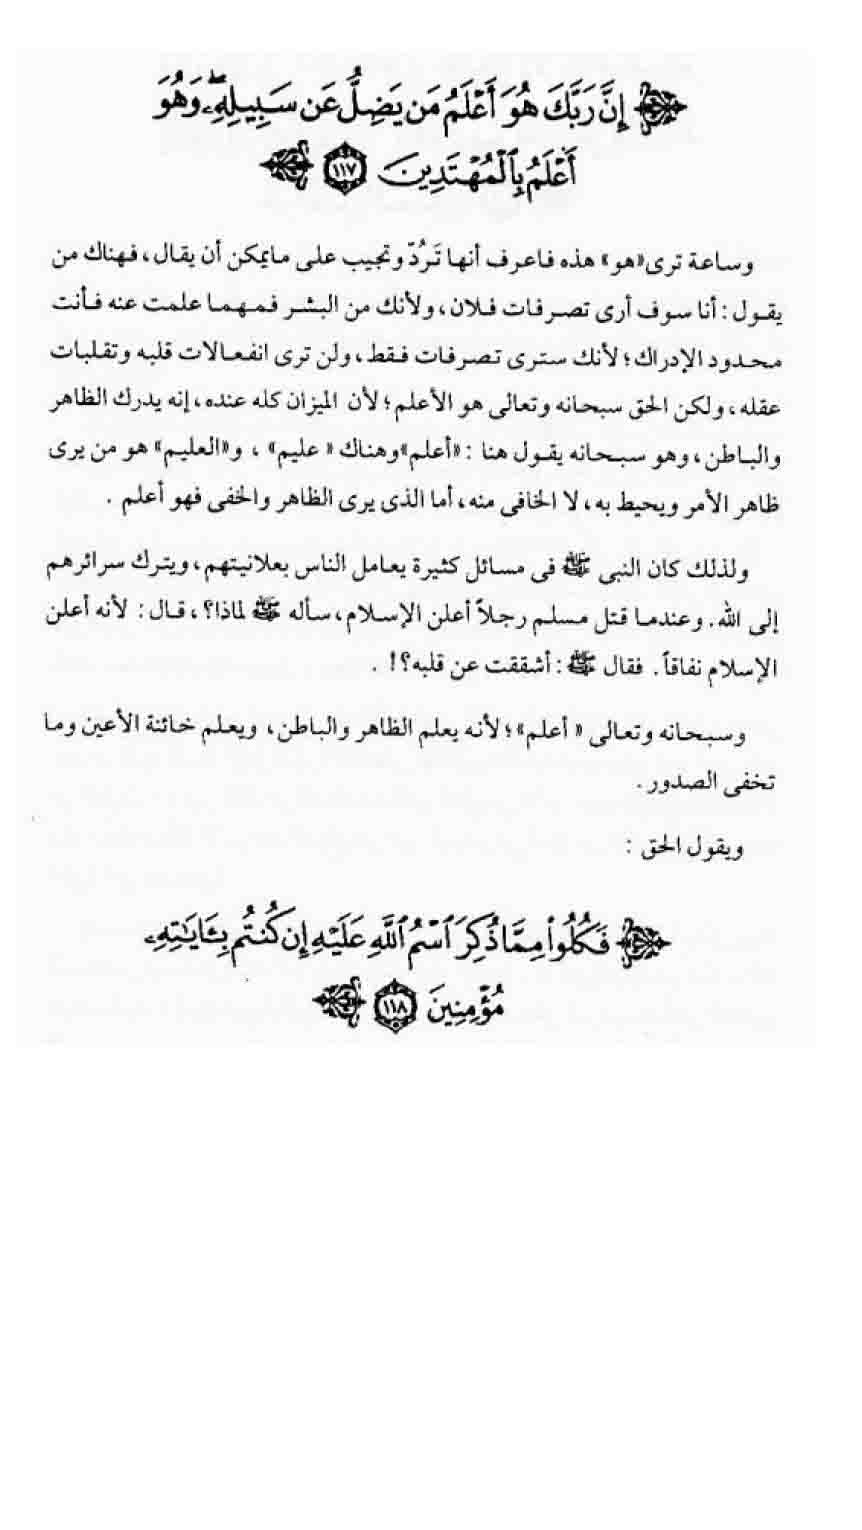 ﴿ إِنَّ رَبَّكَ هُوَ أَعْلَمُ مَن يَضِلُّ عَن سَبِيلِهِۦ ۖ وَهُوَ
أَعْلَمُ بِٱلْمُهْتَدِينَ ١١٧ ﴾
وساعة ترى «هو» هذه فاعرف أنها تَرُدّ وتجيب على مايمكن أن يقال، فهناك من
يقول : أنا سوف أرى تصرفات فلان، ولأنك من البشر فمهما علمت عنه فأنت
محدود الإدراك؛ لأنك سترى تصرفات فقط، ولن ترى انفعالات قلبه وتقلبات
عقله، ولكن الحق سبحانه وتعالى هو الأعلم؛ لأن الميزان كله عنده، إنه يدرك الظاهر
والباطن، وهو سبحانه يقول هنا : «أعلم» وهناك « عليم» ، و«العليم» هو من يرى
ظاهر الأمر ويحيط به، لا الخافى منه، أما الذى يرى الظاهر والخفى فهو أعلم .
ولذلك كان النبى ﷺ فى مسائل كثيرة يعامل الناس بعلانيتهم، ويترك سرائرهم
إلى الله. وعندما قتل مسلم رجلاً أعلن الإسلام، سأله ﷺ لماذا؟، قال : لأنه أعلن
الإسلام نفاقاً. فقال ﷺ : أشققت عن قلبه؟! .
وسبحانه وتعالى « أعلم»؛ لأنه يعلم الظاهر والباطن، ويعلم خائنة الأعين وما
تخفى الصدور.
ويقول الحق :
﴿ فَكُلُوا۟ مِمَّا ذُكِرَ ٱسْمُ ٱللَّهِ عَلَيْهِ إِن كُنتُم بِـَٔايَـٰتِهِۦ
مُؤْمِنِينَ ١١٨ ﴾